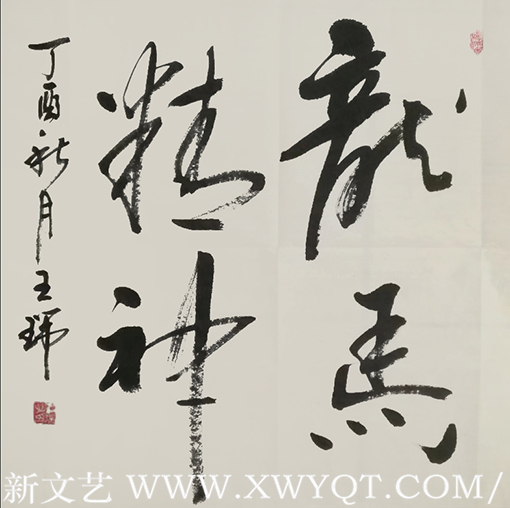 龍馬
精神
丁酉秋月王瑞
新文艺 WWW.XWYQT.COM/